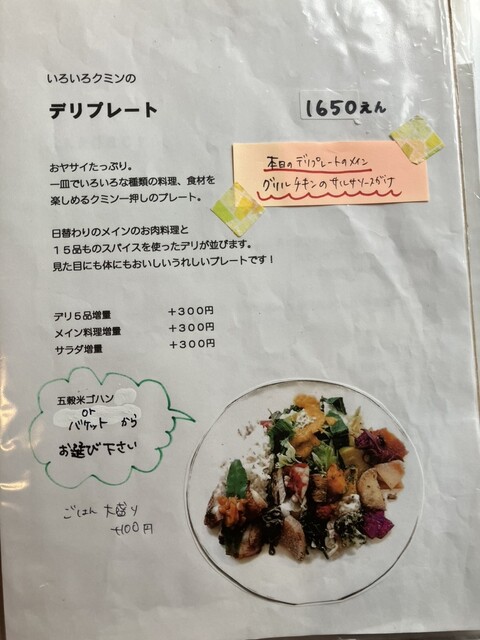 いろいろクミンの
デリプレート
1650えん
本日のデリプレートのメイン
グリルチキンのサルサソースがけ
おヤサイたっぷり。
一皿でいろいろな種類の料理、食材を
楽しめるクミン一押しのプレート。
日替わりのメインのお肉料理と
１５品ものスパイスを使ったデリが並びます。
見た目にも体にもおいしいうれしいプレートです！
デリ５品増量 ＋３００円
メイン料理増量 ＋３００円
サラダ増量 ＋３００円
五穀米ゴハン
or
バケット から
お選び下さい
ごはん 大盛り
+100円